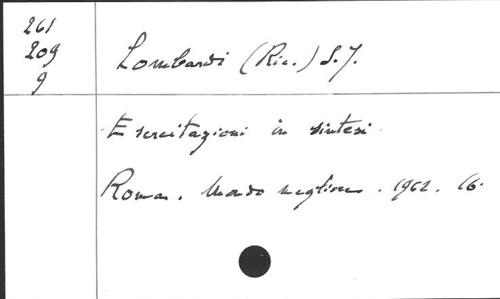 261
209
9
Lombardi (Ric.) S.J.
Esercitazioni in sintesi.
Roma. Mondo migliore. 1962. 16.